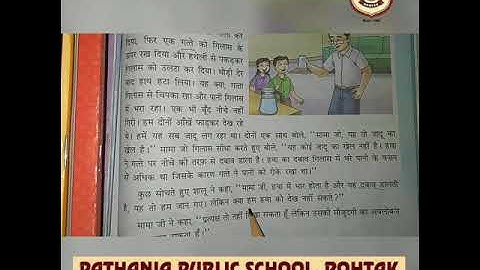 दिया, फिर एक गत्ते को गिलास के
ऊपर रख दिया और हथेली से पकड़कर
गिलास को उलटा कर दिया। थोड़ी देर
बाद हाथ हटा लिया। यह क्या, गत्ता
गिलास से चिपका रहा और पानी गिलास
में भरा रहा। एक भी बूँद नीचे नहीं
गिरी। हम दोनों आँखें फाड़कर देख रहे
थे। हमें यह सब जादू लग रहा था। दोनों एक साथ बोले, "मामा जी, यह तो जादू का
खेल है।" मामा जी गिलास सीधा करते हुए बोले, "यह कोई जादू का खेल नहीं है। हवा
ने गत्ते पर नीचे की तरफ़ से दबाव डाला है। हवा का दबाव गिलास में भरे पानी के वजन
से अधिक था जिसके कारण गत्ते ने पानी को रोके रखा था।"
कुछ सोचते हुए शालू ने कहा, "मामा जी, हवा में भार होता है और यह दबाव डालती
है, यह तो हम जान गए। लेकिन क्या हम हवा को देख नहीं सकते?"
मामा जी ने कहा, "प्रत्यक्ष तो नहीं दिखा सकता हूँ लेकिन उसकी मौजूदगी का अवलोकन
सकता हूँ।"
PATHANIA PUBLIC SCHOOL, ROHTAK